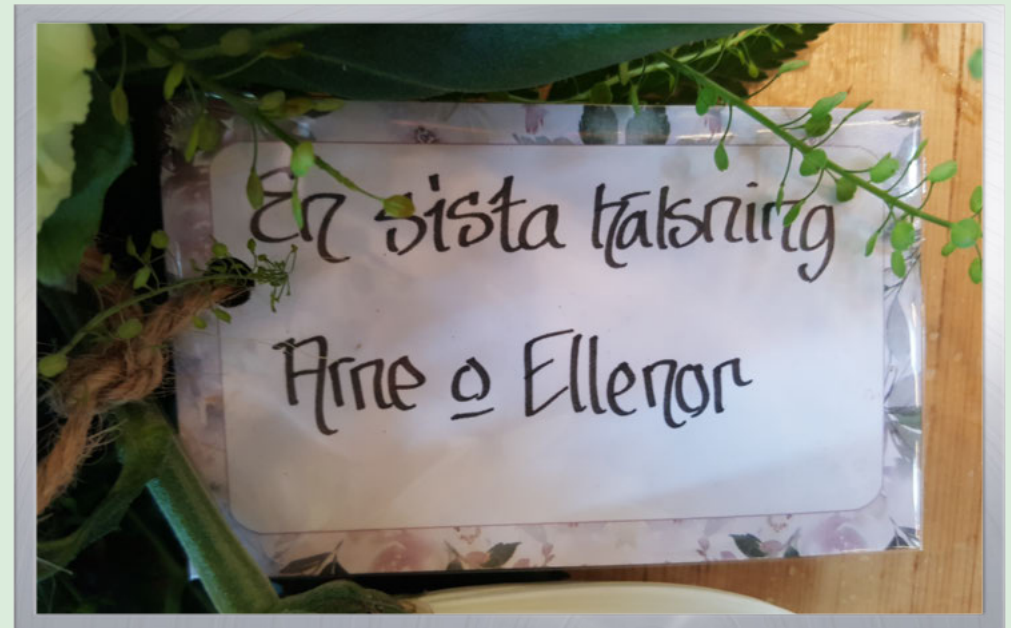 En sista hälsning
Arne o Ellenor